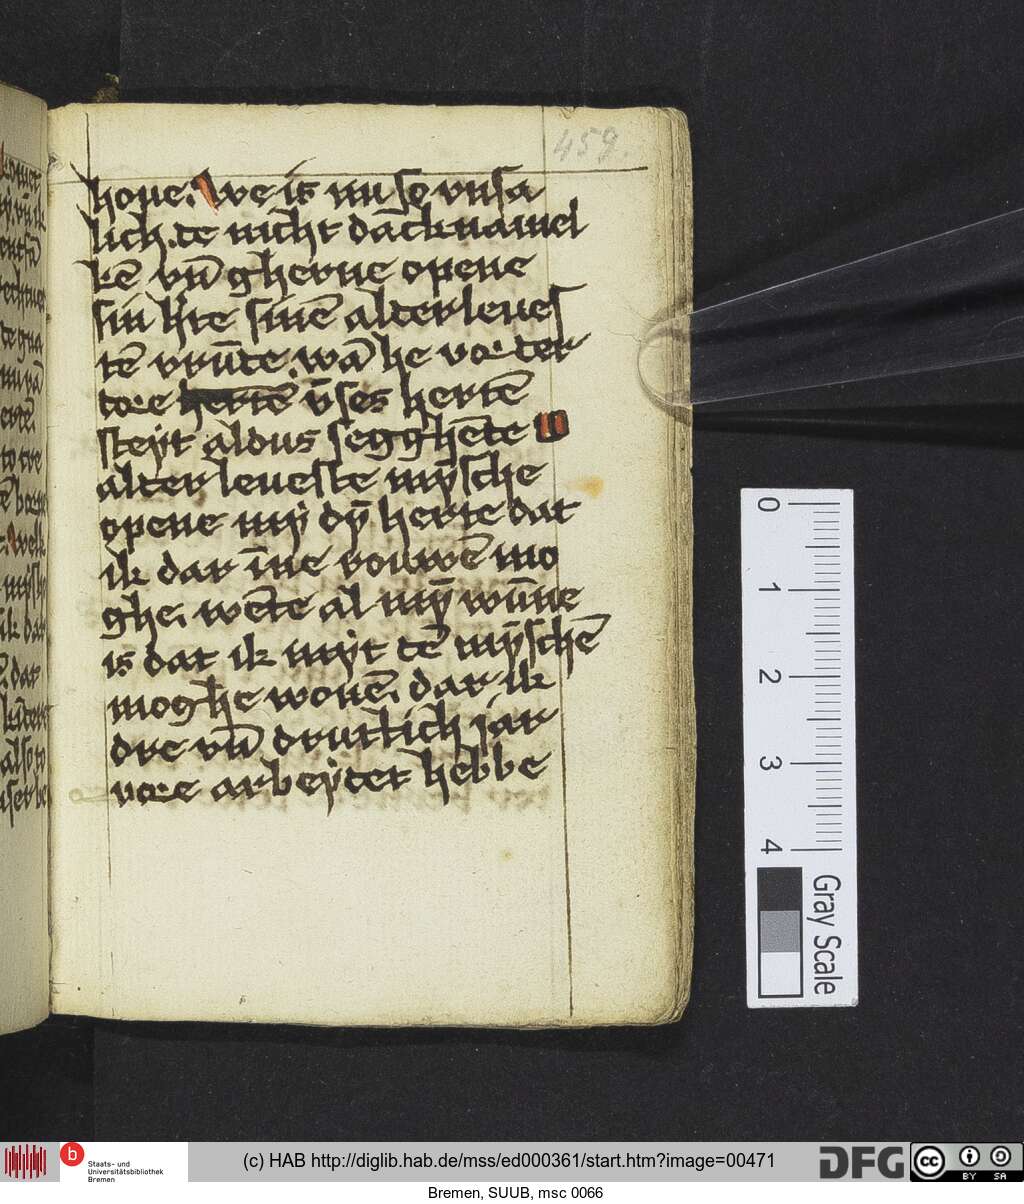 459.
houe. We is nu so vnsa
lich. de nicht dācknamel
kē vn̄ gherne opene
sin h̓te sinē alderleues
tē vrūde. wā he vor der
dore hertē v̄ses hertē
steyt aldus segghēde O
alderleueste mȳsche
opene my dȳ herte dat
ik dar īne rouwē mo
ghe. wēte al mȳ wūne
is dat ik myt dē mȳschē
moghe wonē. dar ik
dre vn̄ druttich jar
vore arbeydet hebbe
0
1
2
3
4
Gray Scale
b
Staats- und
Universitätsbibliothek
Bremen
(c) HAB http://diglib.hab.de/mss/ed000361/start.htm?image=00471
DFG
cc
BY SA
Bremen, SUUB, msc 0066